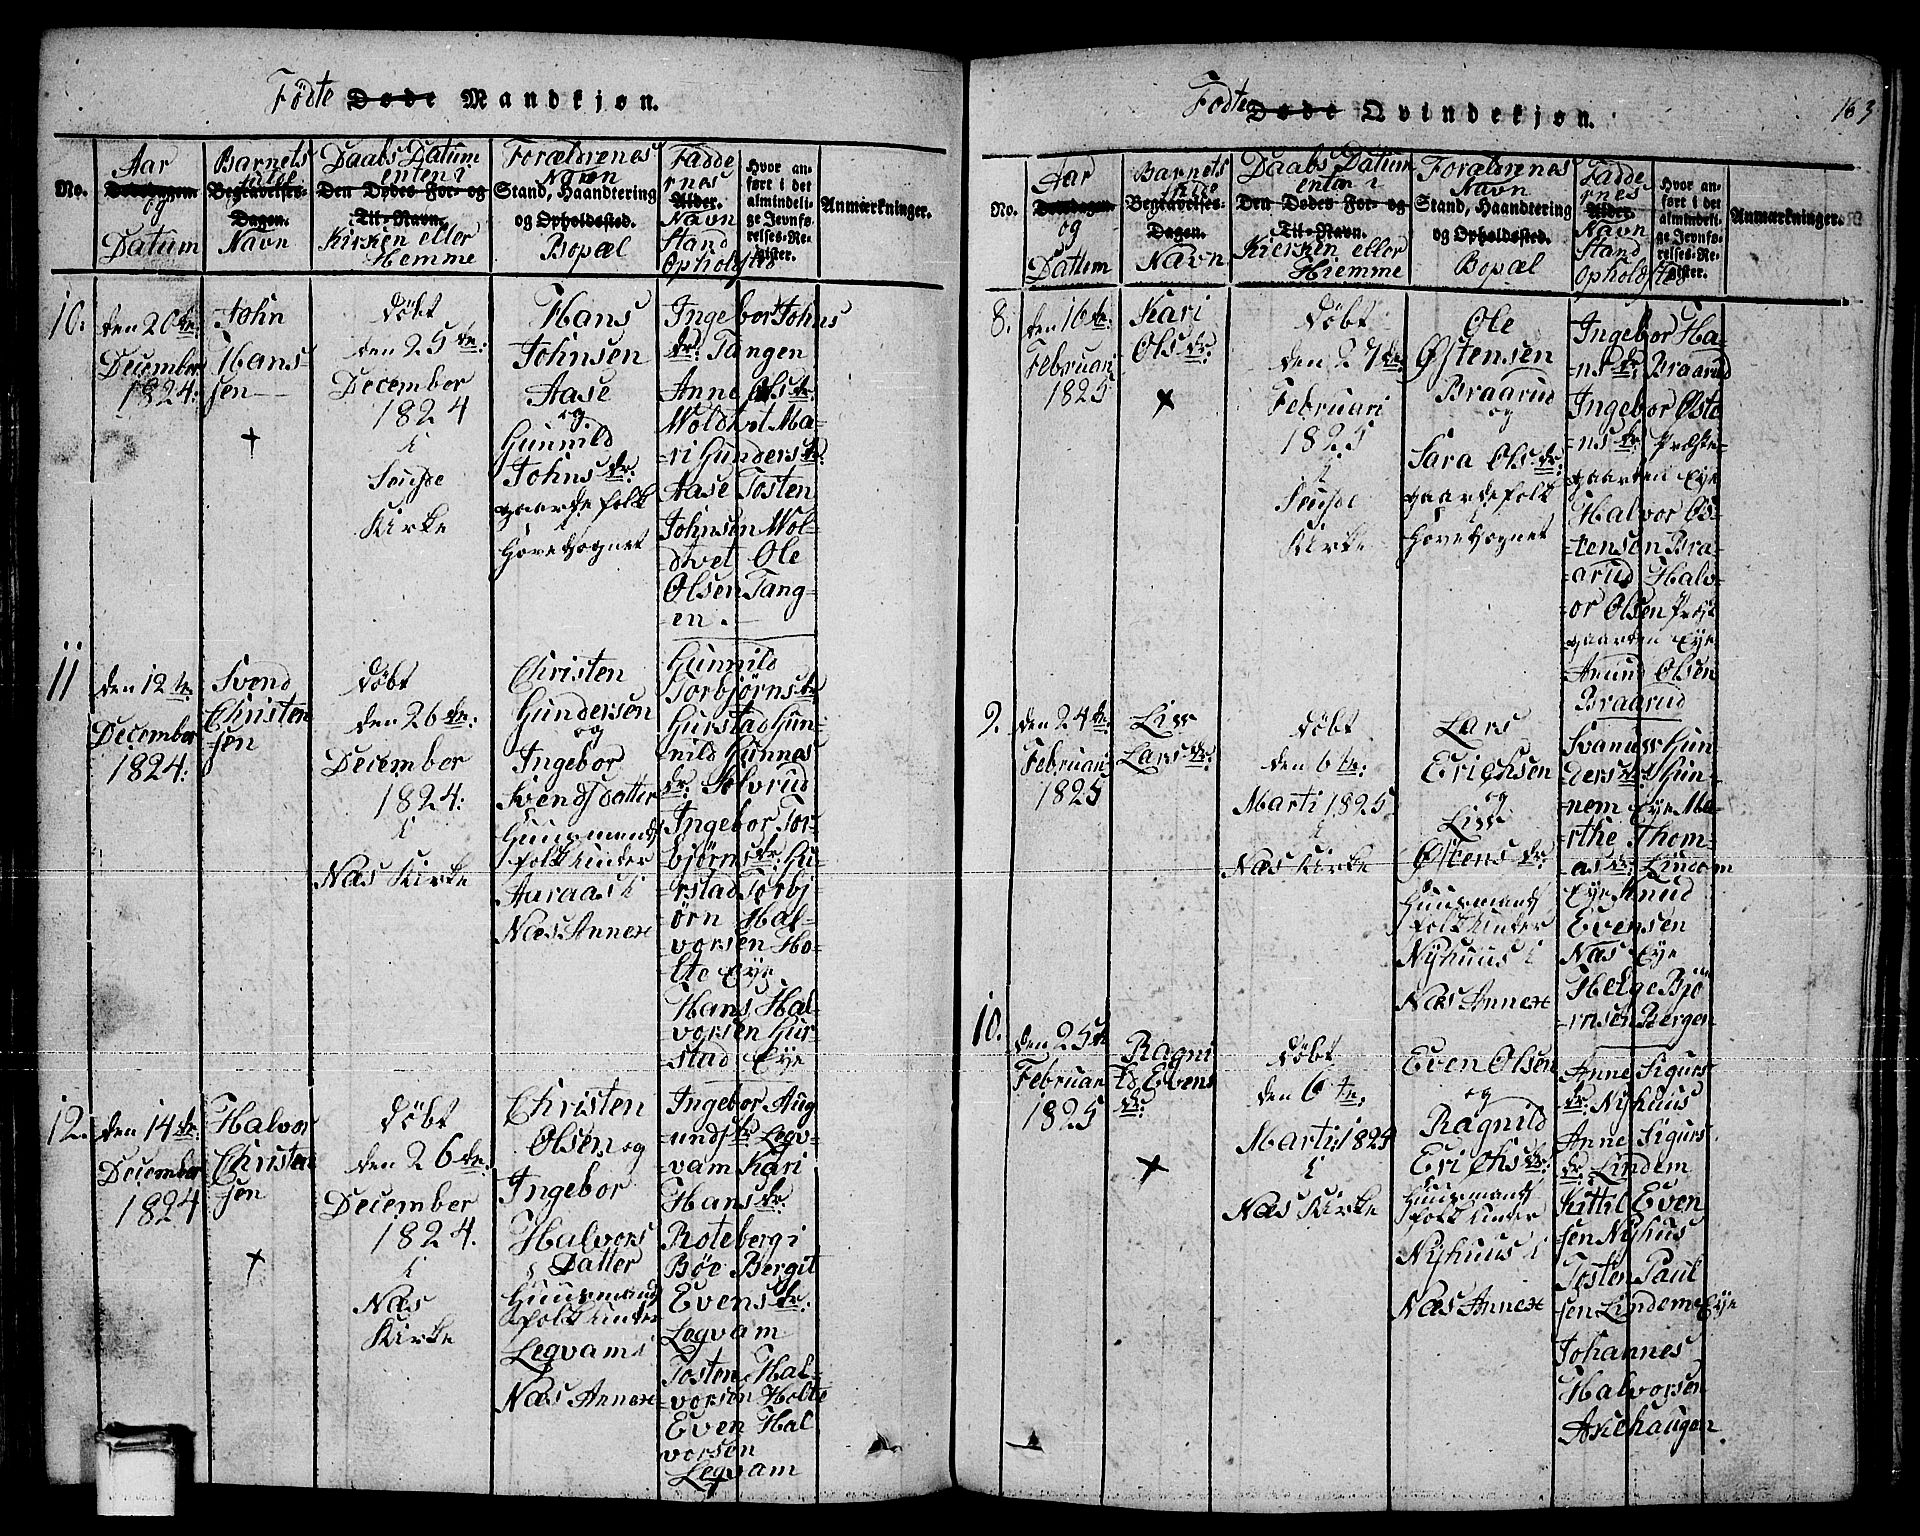 Fødte Døde Mandkjøn.
No.
Aar
Dødsdagen
og
Datum
Barnets
fulde
Begravelses-
Dagen.
Navn
Daabs Datum
enten i
Den Dødes For- og
Til-Navn.
Kirken eller
Hemme
Forældrenes
Navn
Stand, Haandtering
og Opholdssted.
Bopæl
Fadde
rnes
Alder.
Navn
Stand
Opholdsted
Hvor an-
ført i det
almindeli-
ge Jevnfø-
relses-Re-
gister.
Anmærkninger.
10.
den 20de:
December
1824:
John
Hans
sen
+
Døbt
den 25de:
December
1824
i
Kirke
Hans
Johnsen
Aase
og
Gunnild
Johns dr:
gaardefolk
Hovedsognet
Ingebor Johns
dr: Tangen
Anne Ols dr:
Woldvet Ma-
ri Gunders dr:
Aase Tosten
Johnsen Wol-
dvet Ole
Olsen Tang-
en.
11
den 12te
December
1824:
Svend
Christen
sen
Døbt
den 26de:
December
1824:
i
Næs Kirke
Christen
Gundersen
og
Ingebor
Svendsdatter
Huusmands
folk under
Aaraas i
Næs Annex
Gunnild
Torbjørns dr
Gurstad Gun-
nild Gunnes
dr: Solvrud
Ingebor Tor-
bjørns dr: Gu-
rstad Torbj-
ørn Hal-
vorsen Ho-
lte Eye
Hans Hal-
vorsen Gur-
stad Eye
12.
den 14de:
December
1824
Halvor
Christen
sen
+
Døbt
den 26de:
December
1824.
i
Næs
Kirke
Christen
Olsen og
Ingebor
Halvors
Datter
Huusmands
folk under
Legvam i
Næs Annex
Ingebor Aug
unds dr Legv-
vam Kari
Hans dr:
Roteberg i
Bøe Bergit
Evens dr:
Legvam
Tosten Hal-
vorsen Holte
Even Hal
vorsen
Legvam
Fødte Døde Qvindekjøn.
163
No.
Aar
Dødsdagen
og
Datum
Barnets
fulde
Begravelses-
Dagen.
Navn
Daabs Datum
enten i
Den Dødes For- og
Til-Navn.
Kirken eller
Hiemme
Forældrenes
Navn
Stand, Haandtering
og Opholdssted.
Bopæl
Fadde
rnes
Alder.
Navn
Stand
Opholdsted
Hvor an-
ført i det
almindeli-
ge Jevnfø-
relses-Re-
gister.
Anmærkninger.
8.
den 16de:
Februari
1825
Kari
Ols dr:
+
Døbt
den 27de:
Februari
1825
i
Kirke
Ole
Østensen
Braarud
og
Sara Ols dr:
gaardefolk
i
Hovedsognet
Ingebor Ha-
ns dr: Braarud
Ingebor Øste
ns dr Præste-
gaarden Eye
Halvor Øs-
tensen Bra-
arud Halv-
or Olsen Præst
gaarden Eye
Amund Olsen
Braarud
9.
den 24de:
Februari
1825
Liss
Lars dr:
Døbt
den 6te:
Marti 1825
i
Næs Kirke
Lars
Erichsen
og
Liss
Østens dr:
Huusmands
folk under
Nyhuus i
Næs Annex
Svanuss Gun
ders dr Gun-
nem Eye Ma-
rthe Thom-
as dr: Lindem
Eye Knud
Evensen
Næs Eye
Helge Bjö
rnsen Bergen
10.
den 25de
Februar
1825
Ragni
ld Evens
dr:
+
Døbt
den 6te,
Marti: 1824
i
Næs Kirke
Even Olsen
og
Ragnild
Erichs dr:
Huusmands
folk under
Nyhuus i
Næs Annex
Anne Sigurs
dr: Nyhuus
Anne Sigurs
dr: Lindem
Kittil Even
sen Nyhus
Tosten Paul
sen Lindem Eye
Johannes
Halvorsen
Asehaugen.